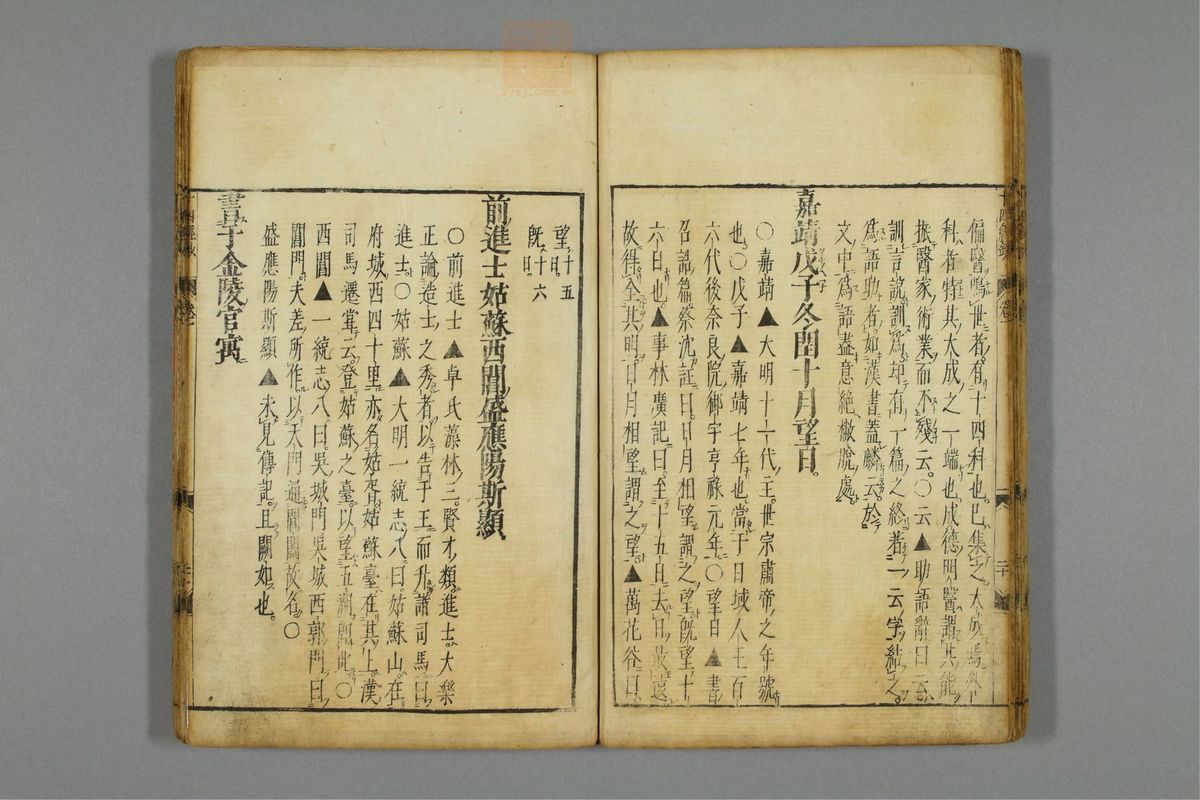 偏醫鳴世者有十四科也巳集之大成焉外
科者特其大成之一端也成德明醫謂其能
振醫家術業而不殘云〇云▲助語辭曰云
訓言說訓爲却有一篇之終著一云字結之
爲語助者如漢書蓋麟云於
文中爲語盡意絶橄脫處
嘉靖戊子冬閏十月望日
〇嘉靖▲大明十一代主世宗肅帝之年號
也〇戊子▲嘉靖七年也當于日域人王百
六代後奈良院御宇亨祿元年〇望日▲書
召誥篇蔡沈註曰日月相望謂之望旣望十
六日也▲事林廣記曰至十五日去日最遠
故得全其明日月相望謂之望▲萬花谷曰
望十五日
旣十六日
前進士姑蘇西閶盛應陽斯顯
〇前進士▲卓氏藻林三賢才類進士大樂
正論造士之秀者以告于王而升諸司馬曰
進士〇姑蘇▲大明一統志八曰姑蘇山在
府城西四十里亦名姑胥姑蘇臺在其上漢
司馬遷嘗云登姑蘇之臺以望五湖卽此〇
西閶▲一統志八曰吳城門吳城西郭門曰
閶門夫差所作以天門通閶闔故名〇
盛應陽斯顯▲未見傳記且闕如也
書于金陵官寓